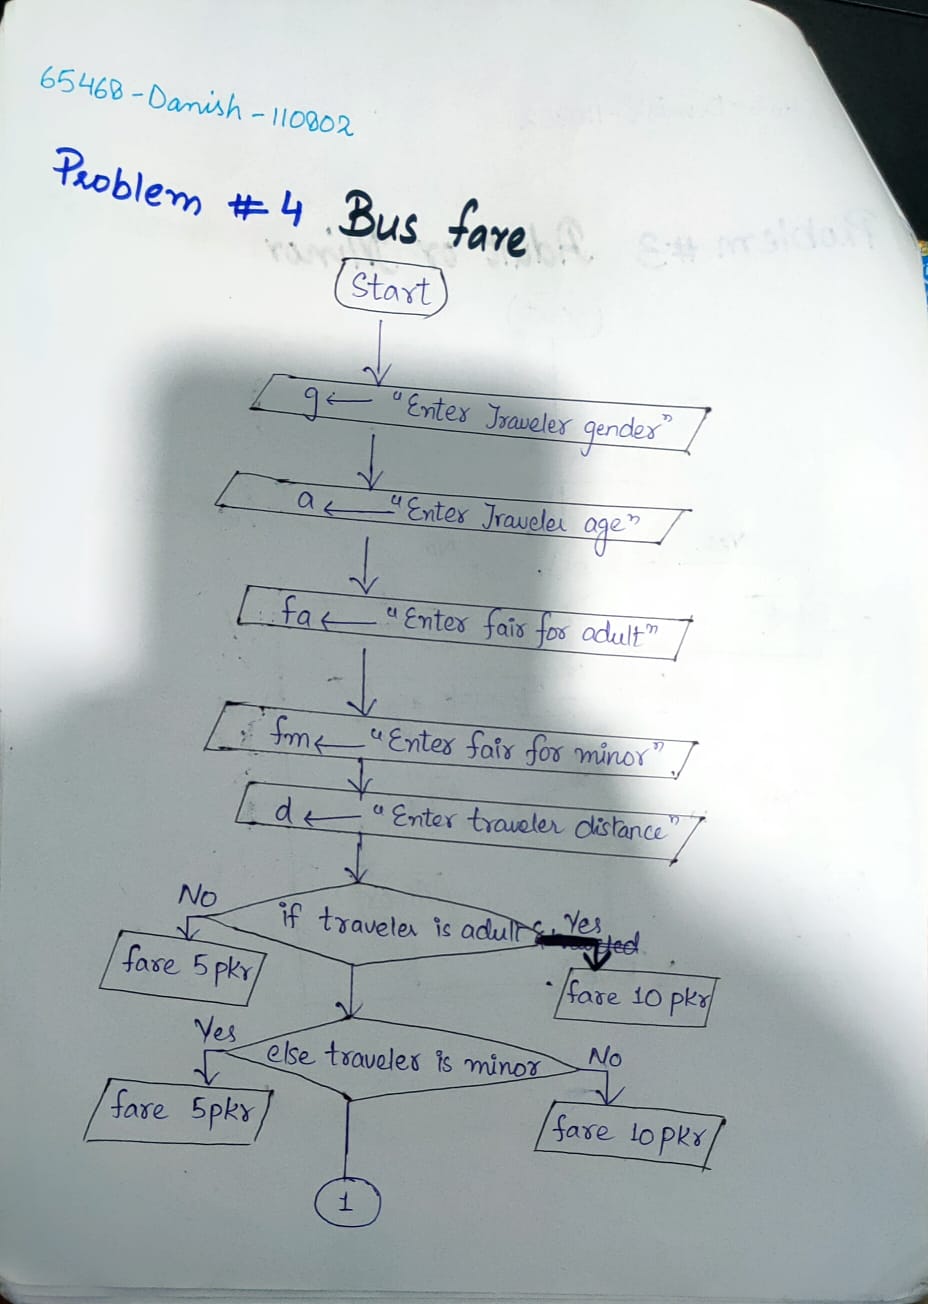 65468-Danish-110802
Problem #4. Bus fare
Start
g ← "Enter Traveler gender"
a ← "Enter Traveler age"
fa ← "Enter fair for adult"
fm ← "Enter fair for minor"
d ← "Enter traveler distance"
No
if traveler is adult
Yes
fare 5 pkr
fare 10 pkr
Yes
else traveler is minor
No
fare 5pkr
fare 10 pkr
1